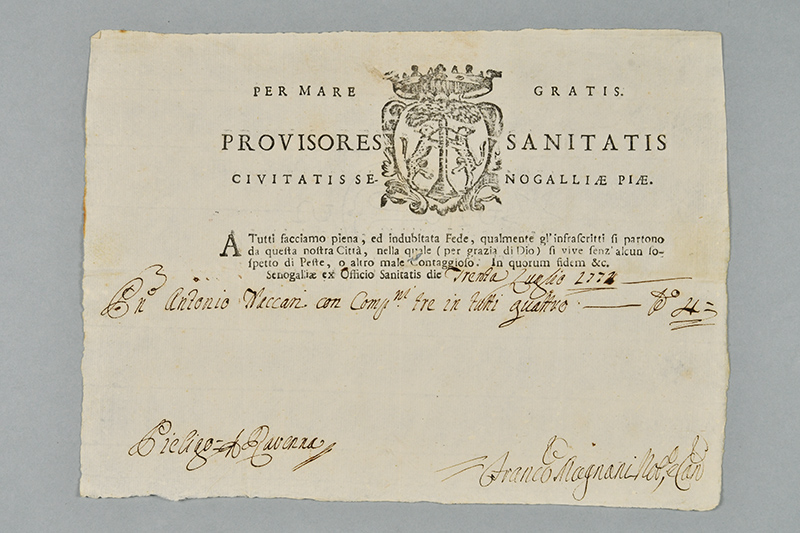 PER MARE GRATIS.
PROVISORES SANITATIS
CIVITATIS SE- NOGALLIÆ PIÆ.
A Tutti facciamo piena, ed indubitata Fede, qualmente gl'infrascritti si partono
da questa nostra Città, nella quale (per grazia di Dio) si vive senz'alcun so-
spetto di Peste, o altro male Contaggioso. In quorum fidem &c.
Senogalliæ ex Officio Sanitatis die Trenta Luglio 1772
Antonio Vaccari con Comp.ni tre in tutti quattro N.o 4
Ravenna
Franc.o Magnani Not.o e Can